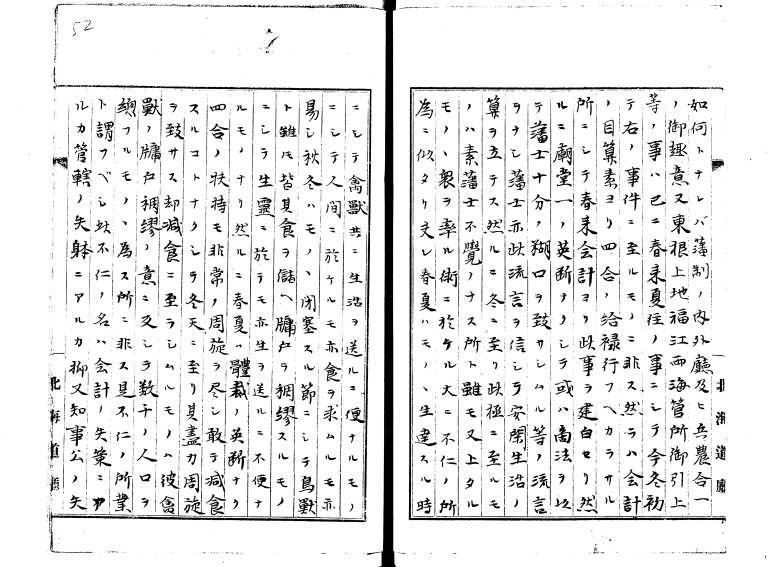 如何トナレバ藩制ノ内外廳及ヒ兵農合一
ノ御趣意又東根上地福江西海管所御引上
等ノ事ハ已ニ春来夏徃ノ事ニシテ今冬初
テ右ノ事件ニ至ルモノニ非ス然ラハ会計
ノ目算素ヨリ四合ノ給禄行フヘカラサル
所ニシテ春来会計ヨリ此事ヲ建白セリ然
ルニ廟堂一ノ英断ナクシテ或ハ商法ヲ以
テ藩士十分ノ糊口ヲ致サシムル等ノ流言
ヲナシ藩士亦此流言ヲ信シテ安閑生活ノ
算ヲ立テス然ルニ冬ニ至リ此極ニ至ルモ
ノハ素藩士不覺ノナス所ト雖モ又上タル
モノヽ衆ヲ率ル術ニ於ケル大ニ不仁ノ所
為ニ似タリ文レ春夏ハモノヽ生達スル時
ニシテ禽獣共ニ生活ヲ送ルニ便ナルモノ
ニシテ人間ニ於ケルモ亦食ヲ求ムルモ亦
易シ秋冬ハモノヽ閉塞スル節ニシテ鳥獣
ト雖モ皆其食ヲ儲ヘ牖戸ヲ稠繆スルモノ
ニシテ生靈ニ於テモ亦生ヲ送ルニ不便ナ
ルモノナリ然ルニ春夏ハ體裁ノ英断ナク
四合ノ扶持モ非常ノ周旋ヲ尽シ敢テ減食
スルコトナクシテ冬天ニ至リ其盡力周旋
ヲ致サス却減食ニ至ラシムルモノハ彼禽
獣ノ牖戸稠繆ノ意ニ反シテ数千ノ人口ヲ
總フルモノヽ為ス所ニ非ス是不仁ノ所業
ト謂フベシ此不仁ノ名ハ会計ノ失策ニヤ
ルカ管轄ノ失躰ニアルカ抑又知事公ノ失
北海道廳
北海道廳
52